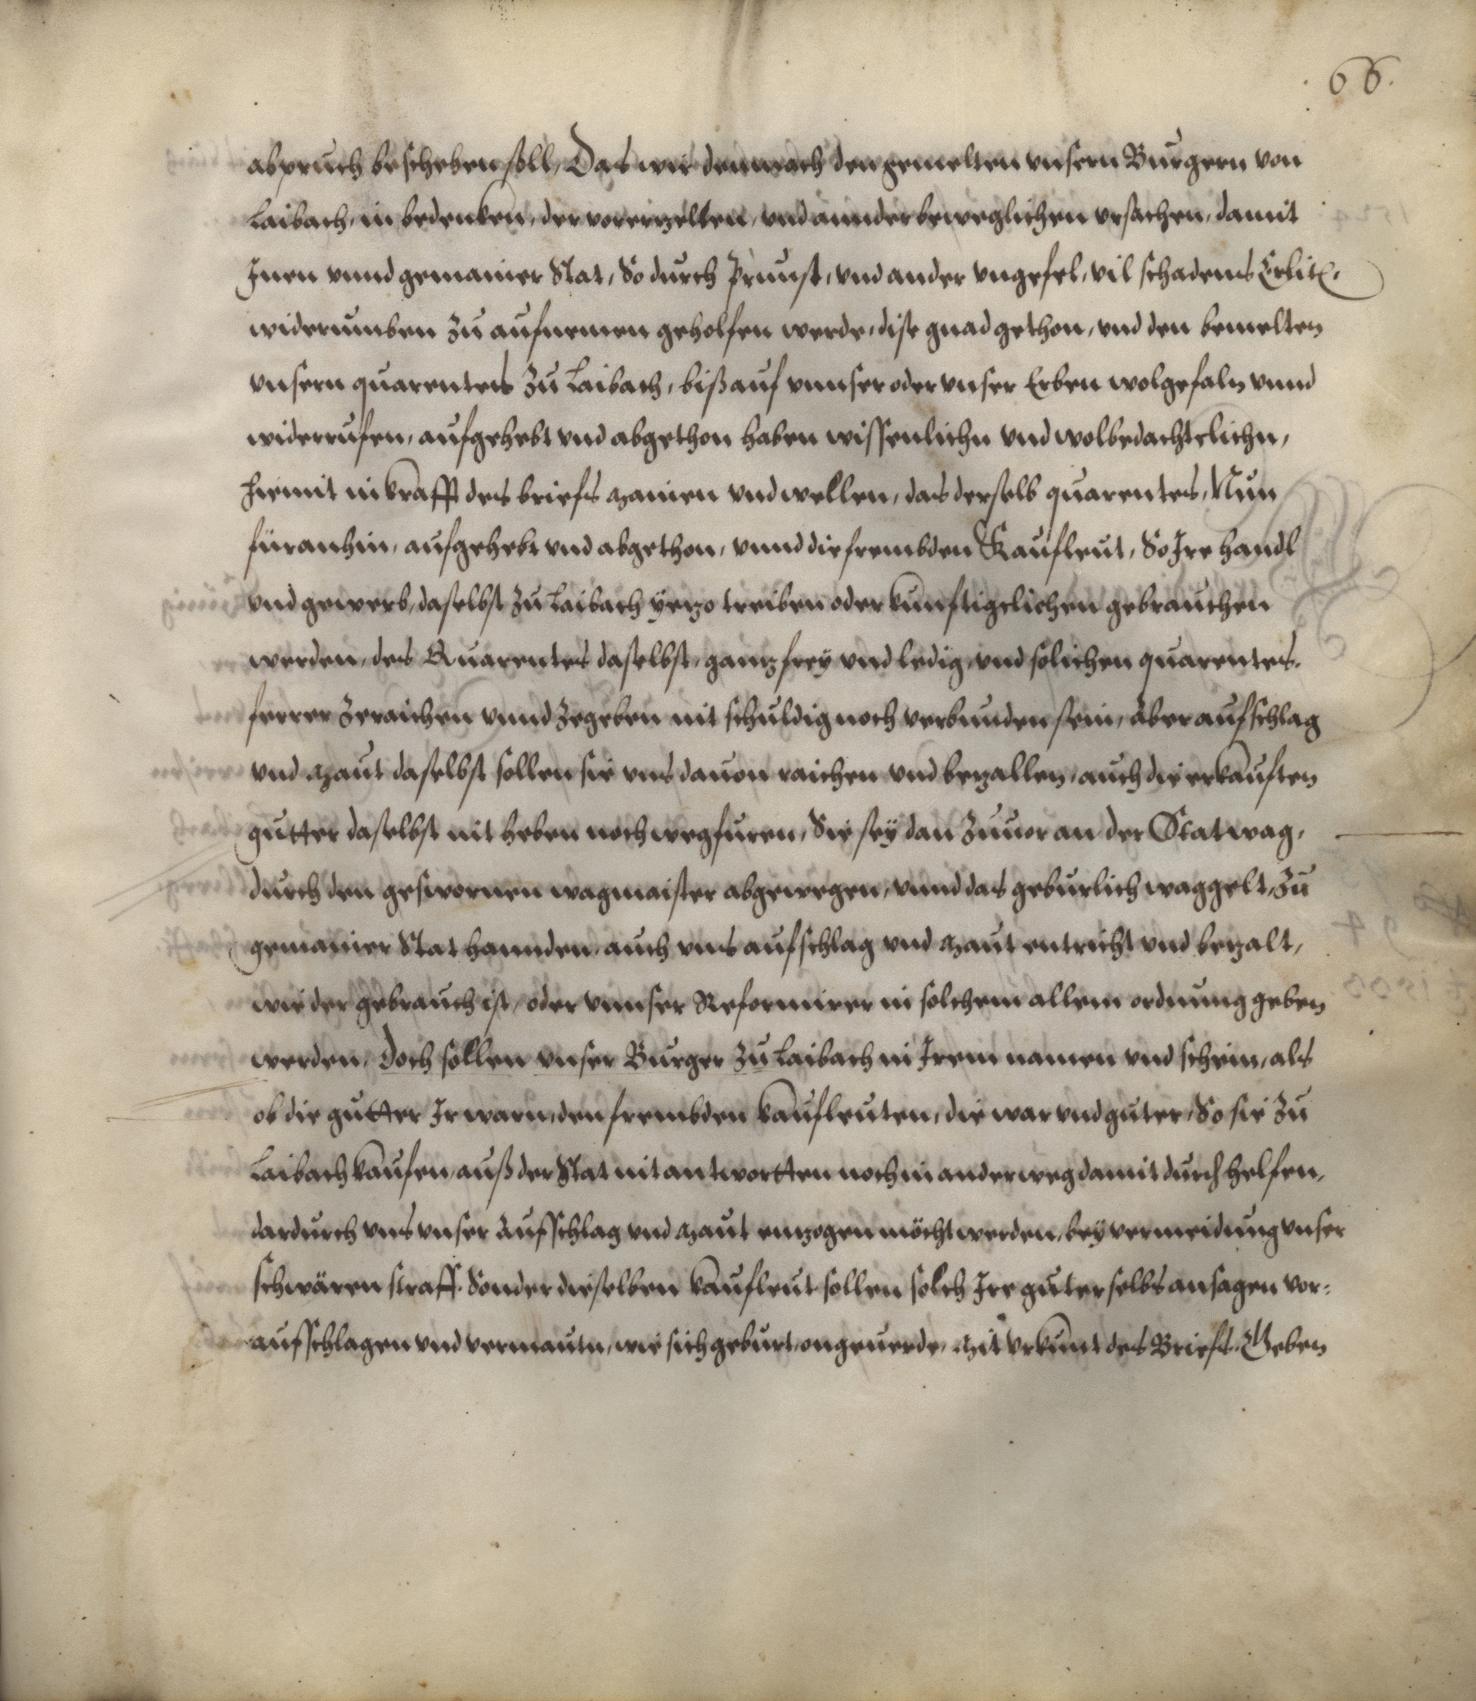 66.
abpruch bescheben soll, Das wir demnach den gemelten vnsern Burgern von
Laibach, in bedenken, der vorerzelten, vnd annder beweglichen vrsachen, damit
Inen vnnd gemainer Stat, So durch Prunst, vnd ander vngefel, vil schadens Erlitt,
widerumben zu aufnemen geholfen werde, dise gnad gethon, vnd den bemelten
vnsern quarentes zu Laibach, biß auf vnnser oder vnser Erben wolgefaln vnnd
widerrufen, aufgehebt vnd abgethon haben wissenlichn vnd wolbedachtlichn,
hiemit in krafft des briefs mainen vnd wellen, das derselb quarentes, Nun
füranhin, aufgehebt vnd abgethon, vnnd die frembden Kaufleut, So Ire handl
vnd gewerb, daselbst zu Laibach yezo treiben oder kunftigclichen gebrauchen
werden, des Quarentes daselbst, ganz frey vnd ledig, vnd solichen quarentes,
ferrer zeraichen vnnd zegeben nit schuldig noch verbunden sein, Aber aufschlag
vnd maut daselbst sollen sie vns dauon raichen vnd bezallen, auch die erkauften
gutter daselbst nit heben noch wegfuren, Sie sey dan zuuor an der Statwag,
durch den geswornen wagmaister abgewegen, vnnd das geburlich waggelt, zu
gemainer Stat hannden, auch vns aufschlag vnd maut entricht vnd bezalt,
wie der gebrauch ist, oder vnnser Reformirer in solchem allem ordnung geben
werden, Doch sollen vnser Burger zu Laibach in Irem namen vnd schein, als
ob die gutter Ir warn, den frembden kaufleuten, die war vnd guter, So sie zu
Laibach kaufen, auß der Stat nit antwortten noch in ander weg damit durch helfen,
dardurch vns vnser Aufschlag vnd maut enzogen möcht werden, bey vermeidung vnser
schwären straff. Sonder dieselben kaufleut sollen solch Ire guter selbs ansagen vor-
aufschlagen vnd vermautn, wie sich geburt, ongeuerde, Mit vrkunt des Briefs, Geben